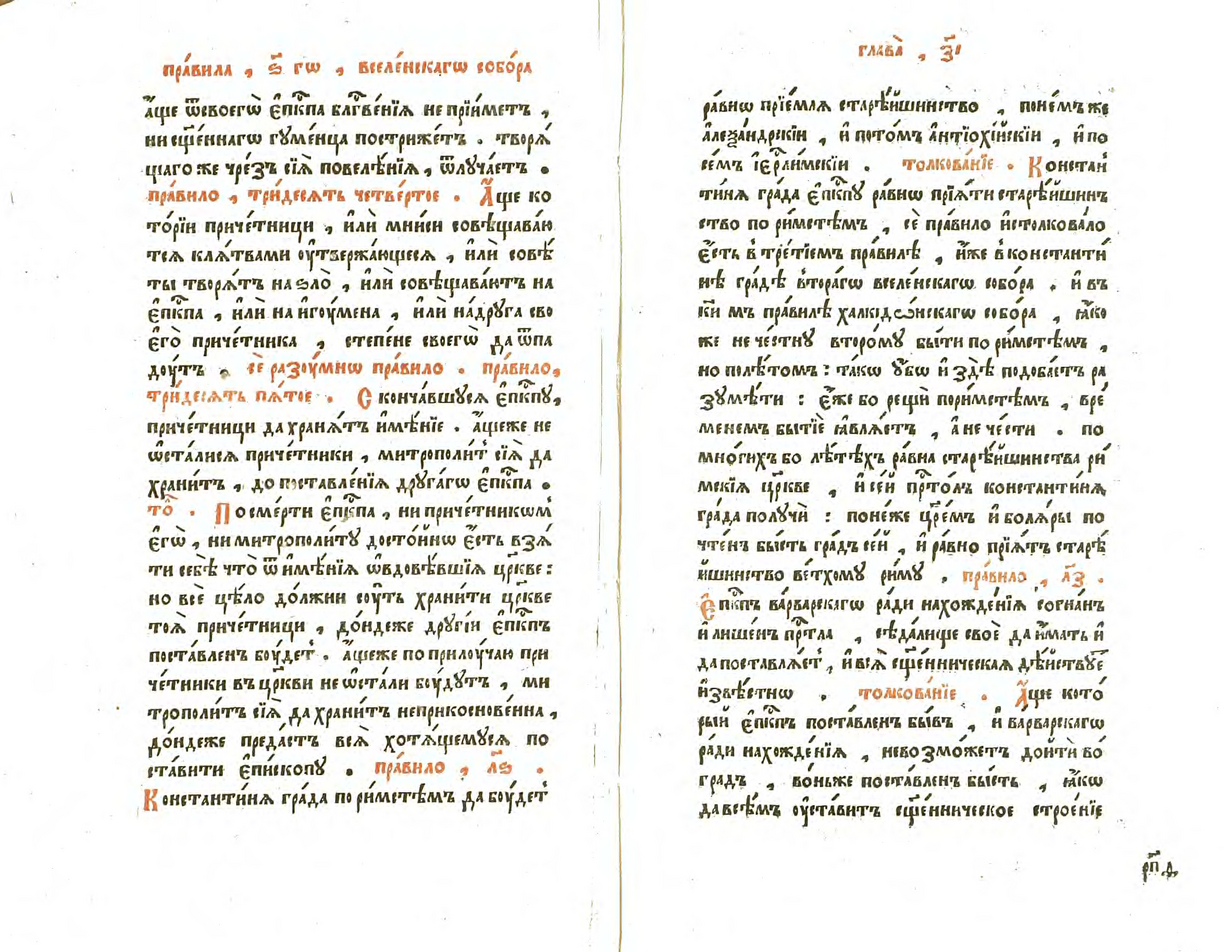 пра́вила , ѕ҃ гѡ , вселе́нскагѡ собо́ра
а҆́ще ѿсвоегѡ̀ є҆пⷭ҇кпа блгⷭ҇ве́нїѧ не прїи́метъ ,
ни сщ҃е́ннагѡ гꙋме́нца постриже́тъ . творѧ́
щагоже чре́зъ сїѧ̀ повелѣ́нїѧ , ѿлꙋча́етъ .
пра́вило , три́десѧть четве́ртое . А҆́ще ко
то́рїи приче́тници , и҆лѝ мни́си совѣщава́ю
тсѧ клѧ́твами оу҆твержа́ющесѧ , и҆лѝ совѣ́
ты творѧ́тъ на ѕло̀ , и҆лѝ совѣщава́ютъ на
є҆пⷭ҇кпа , и҆лѝ на и҆гоу́мена , и҆лѝ на́дрꙋга сво
є҆го̀ приче́тника , степе́не своегѡ̀ да ѿпа
доу́тъ . сѐ разоу́мнѡ пра́вило . пра́вило,
три́десѧть пѧ́тое . Сконча́вшꙋсѧ є҆пⷭ҇кпꙋ,
приче́тници да хранѧ́тъ и҆мѣ́нїе . а҆́щеже не
ѡ҆ста́лисѧ приче́тники , митрополи́т сїѧ̀ да
храни́тъ , до поставле́нїѧ дрꙋга́гѡ є҆пⷭ҇кпа .
то́ . По сме́рти є҆пⷭ҇кпа , ни приче́тникѡм
є҆гѡ̀ , ни митрополи́тꙋ досто́йнѡ є҆́сть взѧ́
ти себѣ̀ что̀ ѿ и҆мѣ́нїѧ ѡ҆вдовѣ́вшїѧ цр҃кве :
но всѐ цѣ́ло до́лжни соу́ть храни́ти цр҃кве
тоѧ̀ приче́тници , до́ндеже дрꙋгі́й є҆пⷭ҇кпъ
поста́вленъ боу́дет . а҆́щеже по прилоу́чаю при
че́тники въ цр҃кви не ѡ҆ста́ли боу́дꙋтъ , ми
трополи́тъ сїѧ̀ да храни́тъ неприкоснове́нна ,
до́ндеже преда́стъ всѧ̀ хотѧ́щемꙋсѧ по
ста́вити є҆пи́скопꙋ . пра́вило , л҃ѕ .
Константи́нѧ гра́да по ри́мстѣмъ да боу́дет
глава̀ , з҃
ра́внѡ прїе́млѧ старѣ́йшинство , поне́мъже
а҆леѯа́ндрскїи , и҆ пото́мъ а҆нтїохі́йскїи , и҆ по
се́мъ і҆ерⷭ҇ли́мскїи . толкова́нїе . Констан
ти́нѧ гра́да є҆пⷭ҇кпꙋ ра́внѡ прїѧ́ти старѣ́йшинъ
ство по ри́мстѣмъ , сѐ пра́вило и҆столкова́ло
є҆́сть в тре́тїемъ пра́вилѣ , и҆́же в константи́
нѣ гра́дѣ втора́гѡ вселе́нскагѡ собо́ра . и҆ въ
к҃и мъ пра́вилѣ халкідѡ́нскагѡ собо́ра , ꙗ҆́ко
же не че́стїꙋ второ́мꙋ бы́ти по ри́мстѣмъ ,
но лѣ́томъ : та́кѡ ᲂу҆́бѡ и҆ здѣ̀ подоба́етъ ра
зꙋмѣ́ти : є҆́же бо рещѝ пори́мстѣмъ , вре́
менемъ бытїѐ ꙗ҆влѧ́етъ , а҆ не че́сти . по
мно́гихъ бо лѣ́тѣхъ ра́вна старѣ́йшинства ри́
мскїѧ цр҃кве , и҆ се́й прⷭ҇то́лъ константи́нѧ
гра́да полꙋчѝ : поне́же цр҃е́мъ и҆ болѧ́ры по
чте́нъ бы́сть гра́дъ се́й , и҆ ра́вно прїѧ́тъ старѣ́
йшинство ве́тхомꙋ ри́мꙋ . пра́вило , л҃з .
Є҆пⷭ҇кпъ ва́рварскагѡ ра́ди нахожде́нїѧ согна́нъ
и҆ лише́нъ прⷭ҇тла , сѣда́лище своѐ да и҆́мать и҆
да поставлѧ́ет , и҆ всѧ̀ сщ҃е́нническаѧ дѣ́йствꙋе
и҆звѣ́стнѡ . толкова́нїе . А҆́ще кото́
рый є҆пⷭ҇кпъ поста́вленъ бы́въ , и҆ ва́рварскагѡ
ра́ди нахожде́нїѧ , не возмо́жетъ дойтѝ во́
градъ , во́ньже поста́вленъ бы́сть , ꙗ҆́кѡ
да всѣ́мъ оу҆ста́витъ сщ҃е́нническое строе́нїе
рп҃д